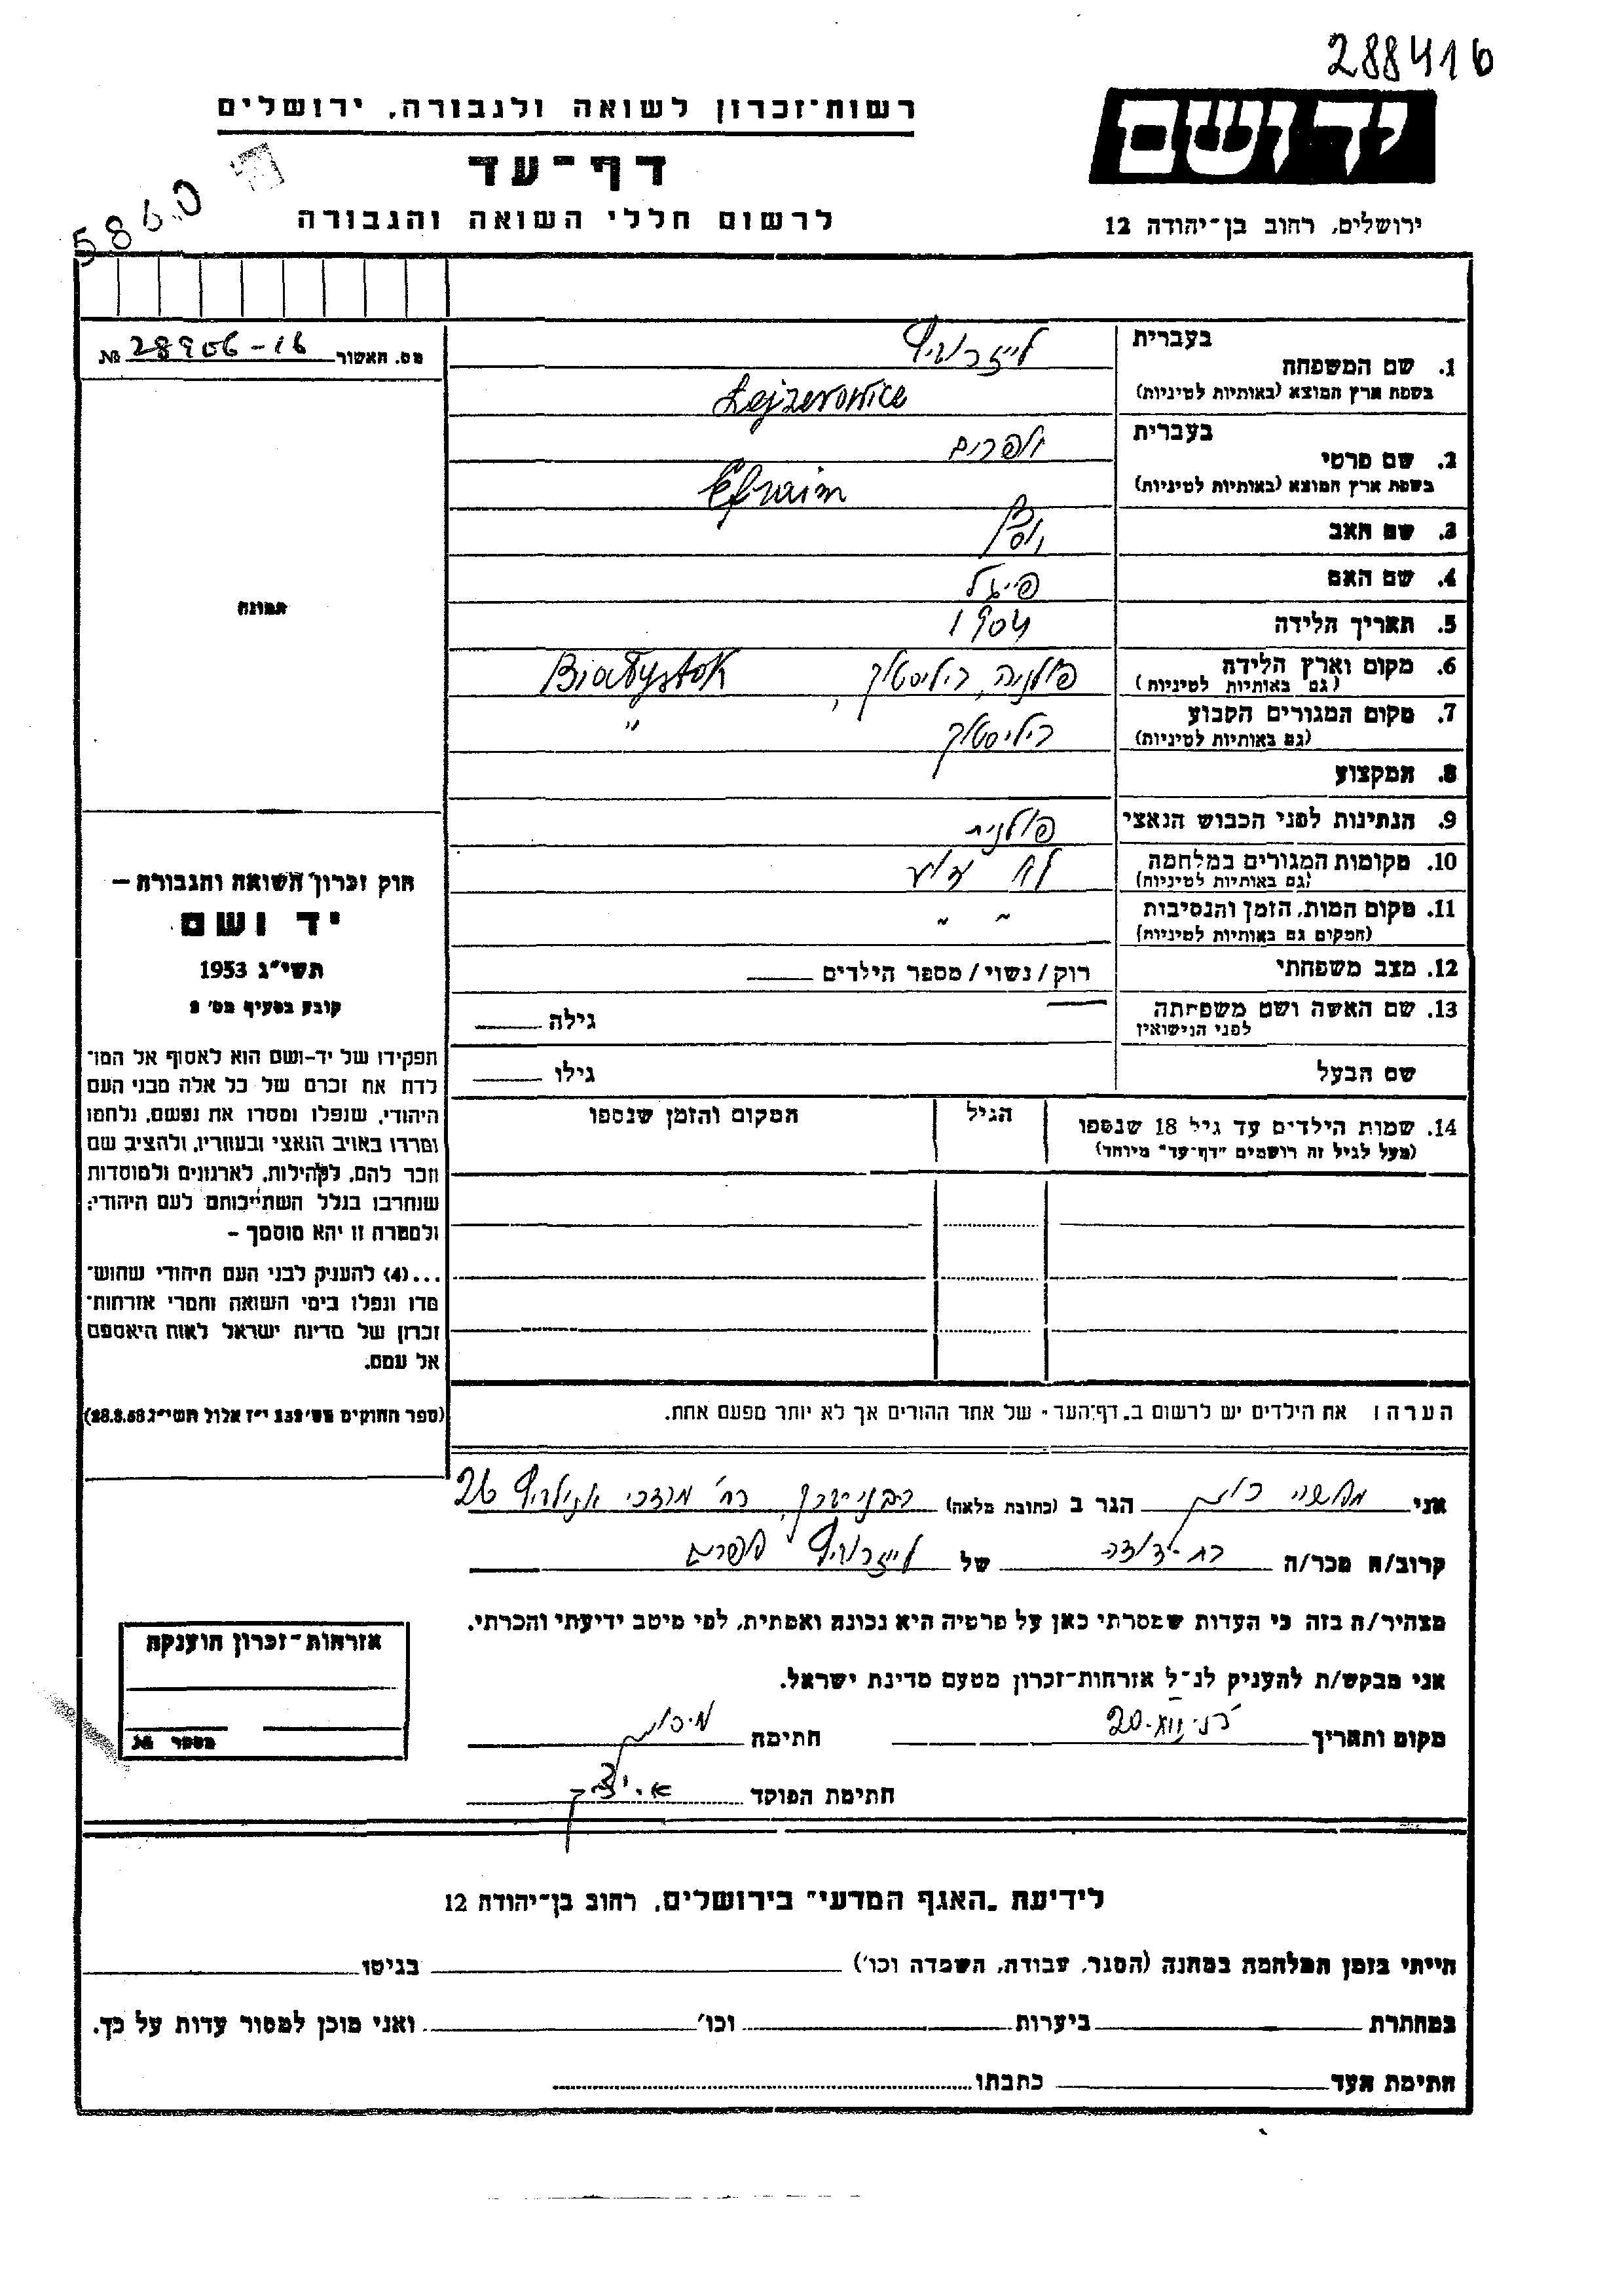 288416
רשות־זכרון לשואה ולגבורה, ירושלים
יד ושם
דף־עד
5860
לרשום חללי השואה והגבורה
ירושלים, רחוב בן־יהודה 12
מס. האשור 28906-16 №
בעברית
לייזרוביץ
1. שם המשפחה
בשפת ארץ המוצא (באותיות לטיניות)
Lejzerowicz
בעברית
אפרים
2. שם פרטי
בשפת ארץ המוצא (באותיות לטיניות)
Efraim
3. שם האב
4. שם האם פייגל
5. תאריך הלידה 1904
6. מקום וארץ הלידה פולניה, ביליסטוק, Białystok
(גם באותיות לטיניות)
7. מקום המגורים הקבוע ביליסטוק "
(גם באותיות לטיניות)
8. המקצוע
9. הנתינות לפני הכבוש הנאצי פולנית
10. מקומות המגורים במלחמה לא ידוע
(גם באותיות לטיניות)
11. מקום המות, הזמן והנסיבות " "
(המקום גם באותיות לטיניות)
12. מצב משפחתי רוק/נשוי/מספר הילדים
13. שם האשה ושם משפחתה גילה
לפני הנישואין
שם הבעל גילו
14. שמות הילדים עד גיל 18 שנספו הגיל המקום והזמן שנספו
(מעל לגיל זה רושמים "דף־עד" מיוחד)
תמונה
חוק זכרון השואה והגבורה –
יד ושם
תשי"ג 1953
קובע בסעיף מס׳ 2
תפקידו של יד-ושם הוא לאסוף אל המו־
לדת את זכרם של כל אלה מבני העם
היהודי, שנפלו ומסרו את נפשם, נלחמו
ומרדו באויב הנאצי ובעוזריו, ולהציב שם
וזכר להם, לקהילות, לארגונים ולמוסדות
שנחרבו בגלל השתייכותם לעם היהודי;
ולמטרה זו יהא מוסמך –
...(4) להעניק לבני העם היהודי שהוש־
מדו ונפלו בימי השואה והמרי אזרחות־
זכרון של מדינת ישראל לאות היאספם
אל עמם.
(ספר החוקים מס׳ 132 י"ז אלול תשי"ג 28.8.53)
הערה: את הילדים יש לרשום ב„דף־העד" של אחד ההורים אך לא יותר מפעם אחת.
אני הגר ב (כתובת מלאה) רח׳ מרדכי אנילביץ 26
קרוב/ה מכר/ה בת-דודה של לייזרוביץ אפרים
מצהיר/ה בזה כי העדות שמסרתי כאן על פרטיה היא נכונה ואמתית, לפי מיטב ידיעתי והכרתי.
אני מבקש/ת להעניק לנ"ל אזרחות־זכרון מטעם מדינת ישראל.
מקום ותאריך חתימה
חתימת הפוקד
אזרחות־זכרון הוענקה
מספר №
לידיעת „האגף המדעי" בירושלים, רחוב בן־יהודה 12
הייתי בזמן המלחמה במחנה (הסגר, עבודה, השמדה וכו׳) בגיטו
במחתרת ביערות וכו׳ ואני מוכן למסור עדות על כך.
חתימת העד כתבתו